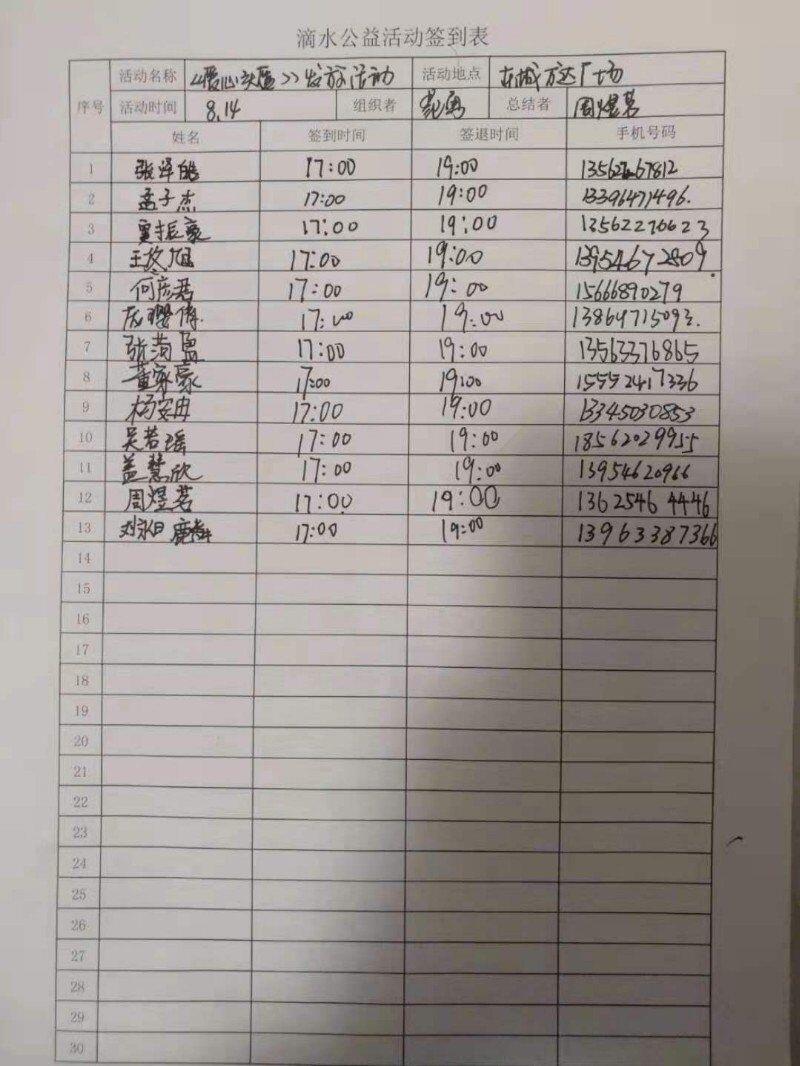 滴水公益活动签到表
序号 活动名称 《爱心头盔》发放活动 活动地点 东城万达广场
活动时间 8.14 组织者 总结者 周煜茗
姓名 签到时间 签退时间 手机号码
1 张泽皓 17:00 19:00
2 孟子杰 17:00 19:00 13396471496.
3 贾振豪 17:00 19:00 13562276623
4 17:00 19:00 13954672809.
5 何彦君 17:00 19:00 15666890279
6 17:00 19:00 13864715093.
7 17:00 19:00 13563376865
8 董家豪 17:00 19:00 15552417336
9 杨安冉 17:00 19:00 13345030853
10 吴若瑶 17:00 19:00 18562029955
11 盖慧欣 17:00 19:00 13954620966
12 周煜茗 17:00 19:00 13625464446
13 17:00 19:00 13963387366
14
15
16
17
18
19
20
21
22
23
24
25
26
27
28
29
30